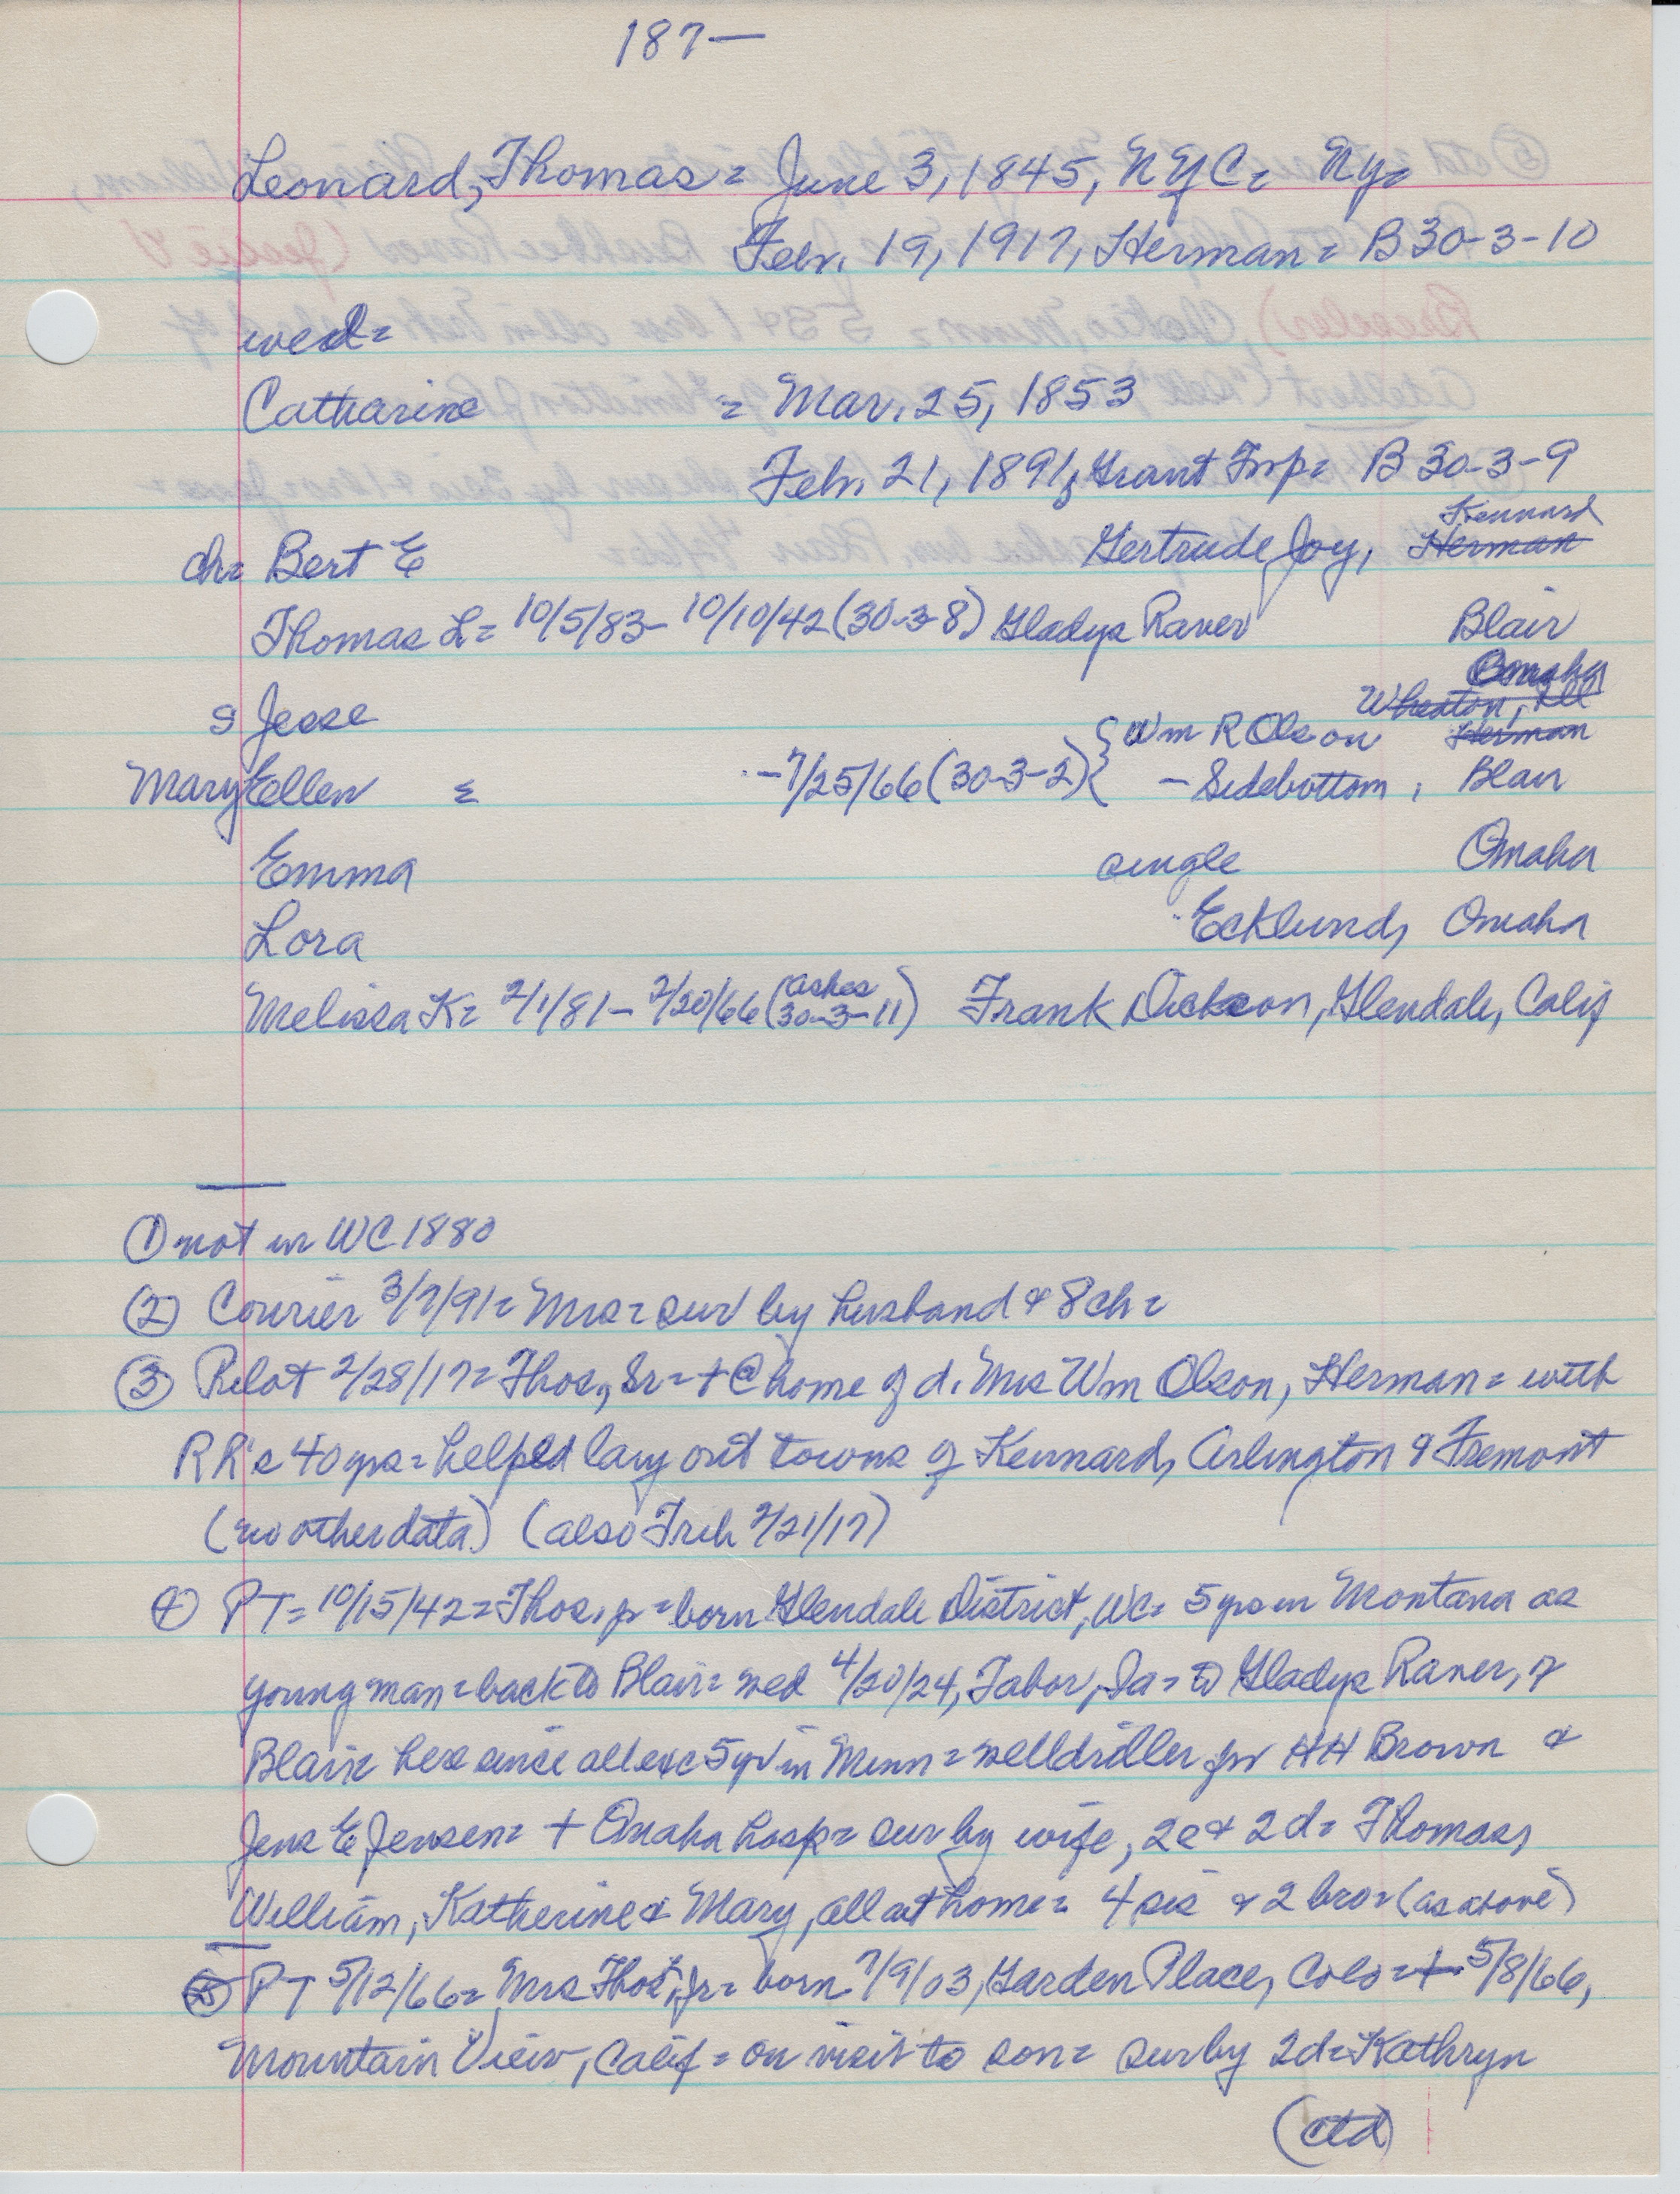 187—
Leonard, Thomas = June 3, 1845, NYC = Ny=
Feb. 19, 1917, Herman = B 30-3-10
wed=
Catharine = Mar. 25, 1853
Feb. 21, 1891, Grant Twp= B 30-3-9
Kennard
ch= Bert E Gertrude Joy, Herman
Thomas L= 10/5/83- 10/10/42 (30-3-8) Gladys Raver Blair
Omaha
Wheaton, Ill
s Jesse { Wm R Olson Herman
Mary Ellen = -7/25/66 (30-3-2) { - Sidebottom, Blair
Emma single Omaha
Lora Ecklund, Omaha
ashes
Melissa K= 2/1/81- 2/20/66 (30-3-11) Frank Dickson, Glendale, Calif
① not in WC 1880
② Courier 3/7/91= Mrs= sur by husband & 8 ch=
③ Pilot 2/28/17= Thos, Sr= + @ home of d. Mrs Wm Olson, Herman= with
RR's 40 yrs= helped lay out towns of Kennard, Arlington & Fremont
(no other data) (also Trib 2/21/17)
④ PT= 10/15/42= Thos, jr= born Glendale District, WC= 5 yrs in Montana as
young man= back to Blair= wed 4/20/24, Tabor, Ia= to Gladys Raver, of
Blair= here since all exc 5 yr in Minn= welldriller for HH Brown &
Jens E Jensen= + Omaha hosp= sur by wife, 2 s & 2 d= Thomas,
William, Katherine & Mary, all at home= 4 sis & 2 bro= (as above)
⑤ PT 5/12/66= Mrs Thos, Jr= born 7/9/03, Garden Place, Colo= + 5/8/66,
Mountain View, Calif= on visit to son= sur by 2 d= Kathryn
(ctd)